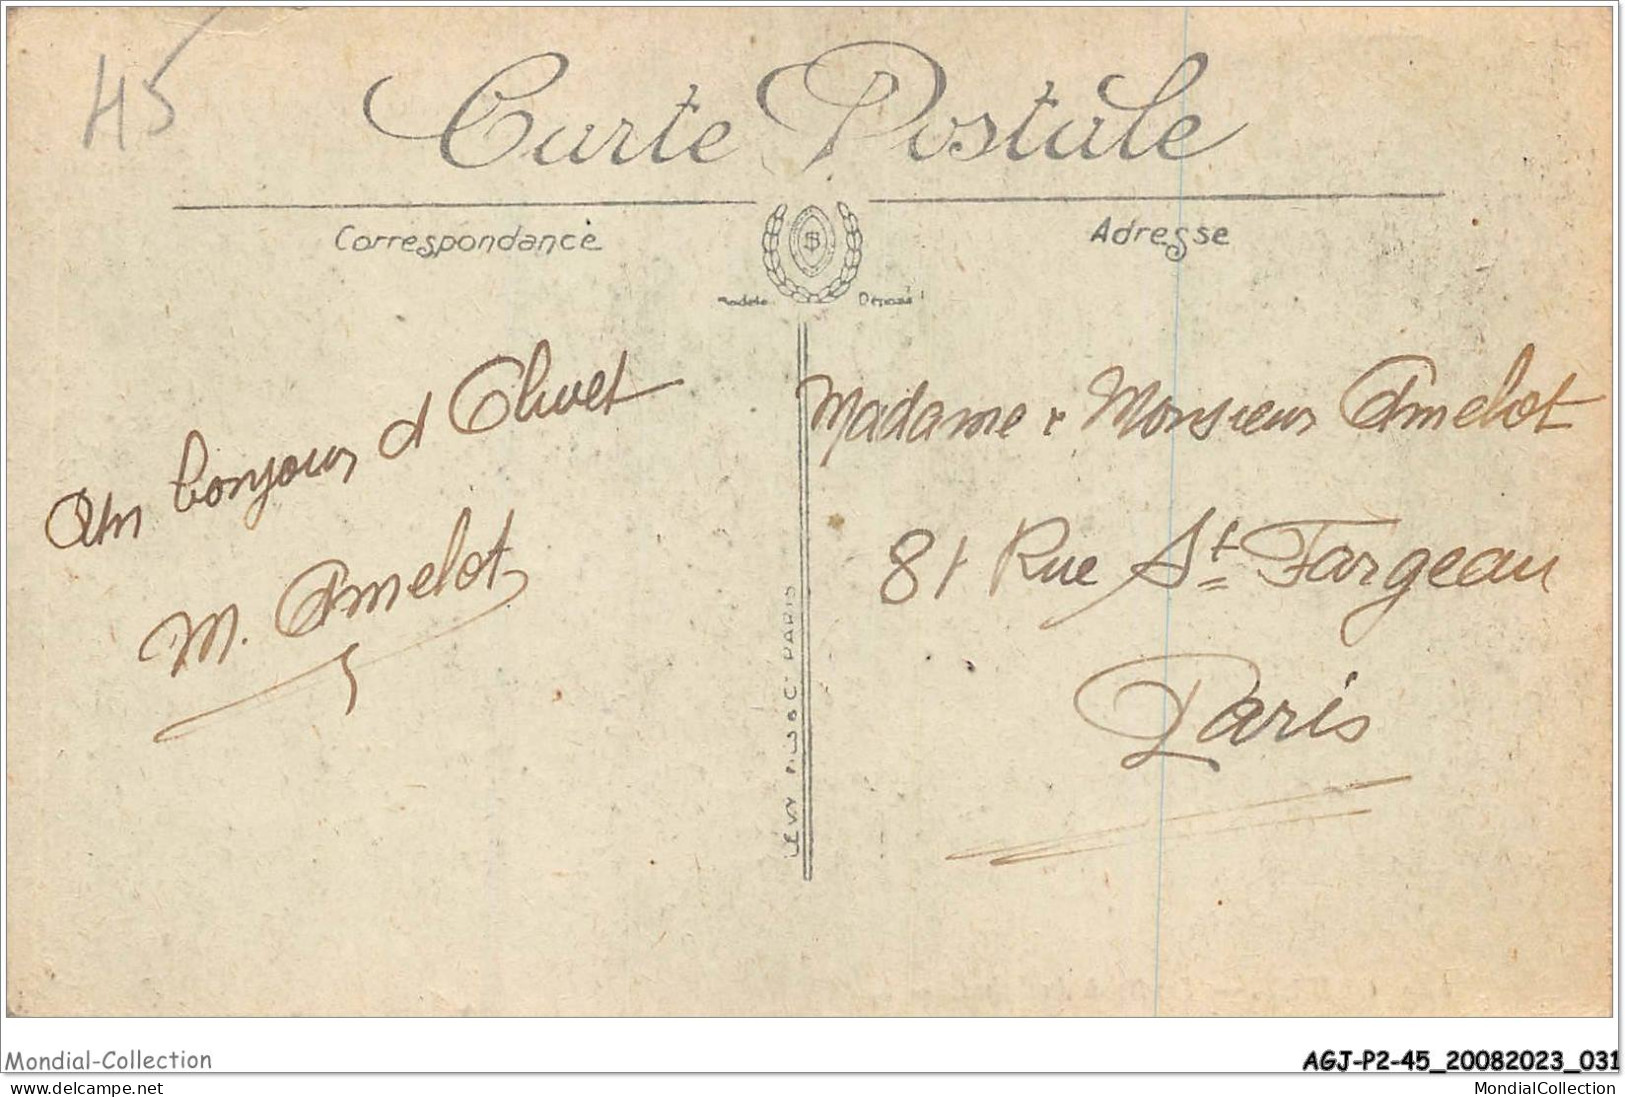 45
Carte Postale
Correspondance
Adresse
Modèle Déposé
Un bonjour d Olivet
M. Amelot
LEVY FILS & Cie PARIS
Madame & Monsieur Amelot
81 Rue St Fargeau
Paris
Mondial-Collection
AGJ-P2-45_20082023_031
delcampe.net
MondialCollection